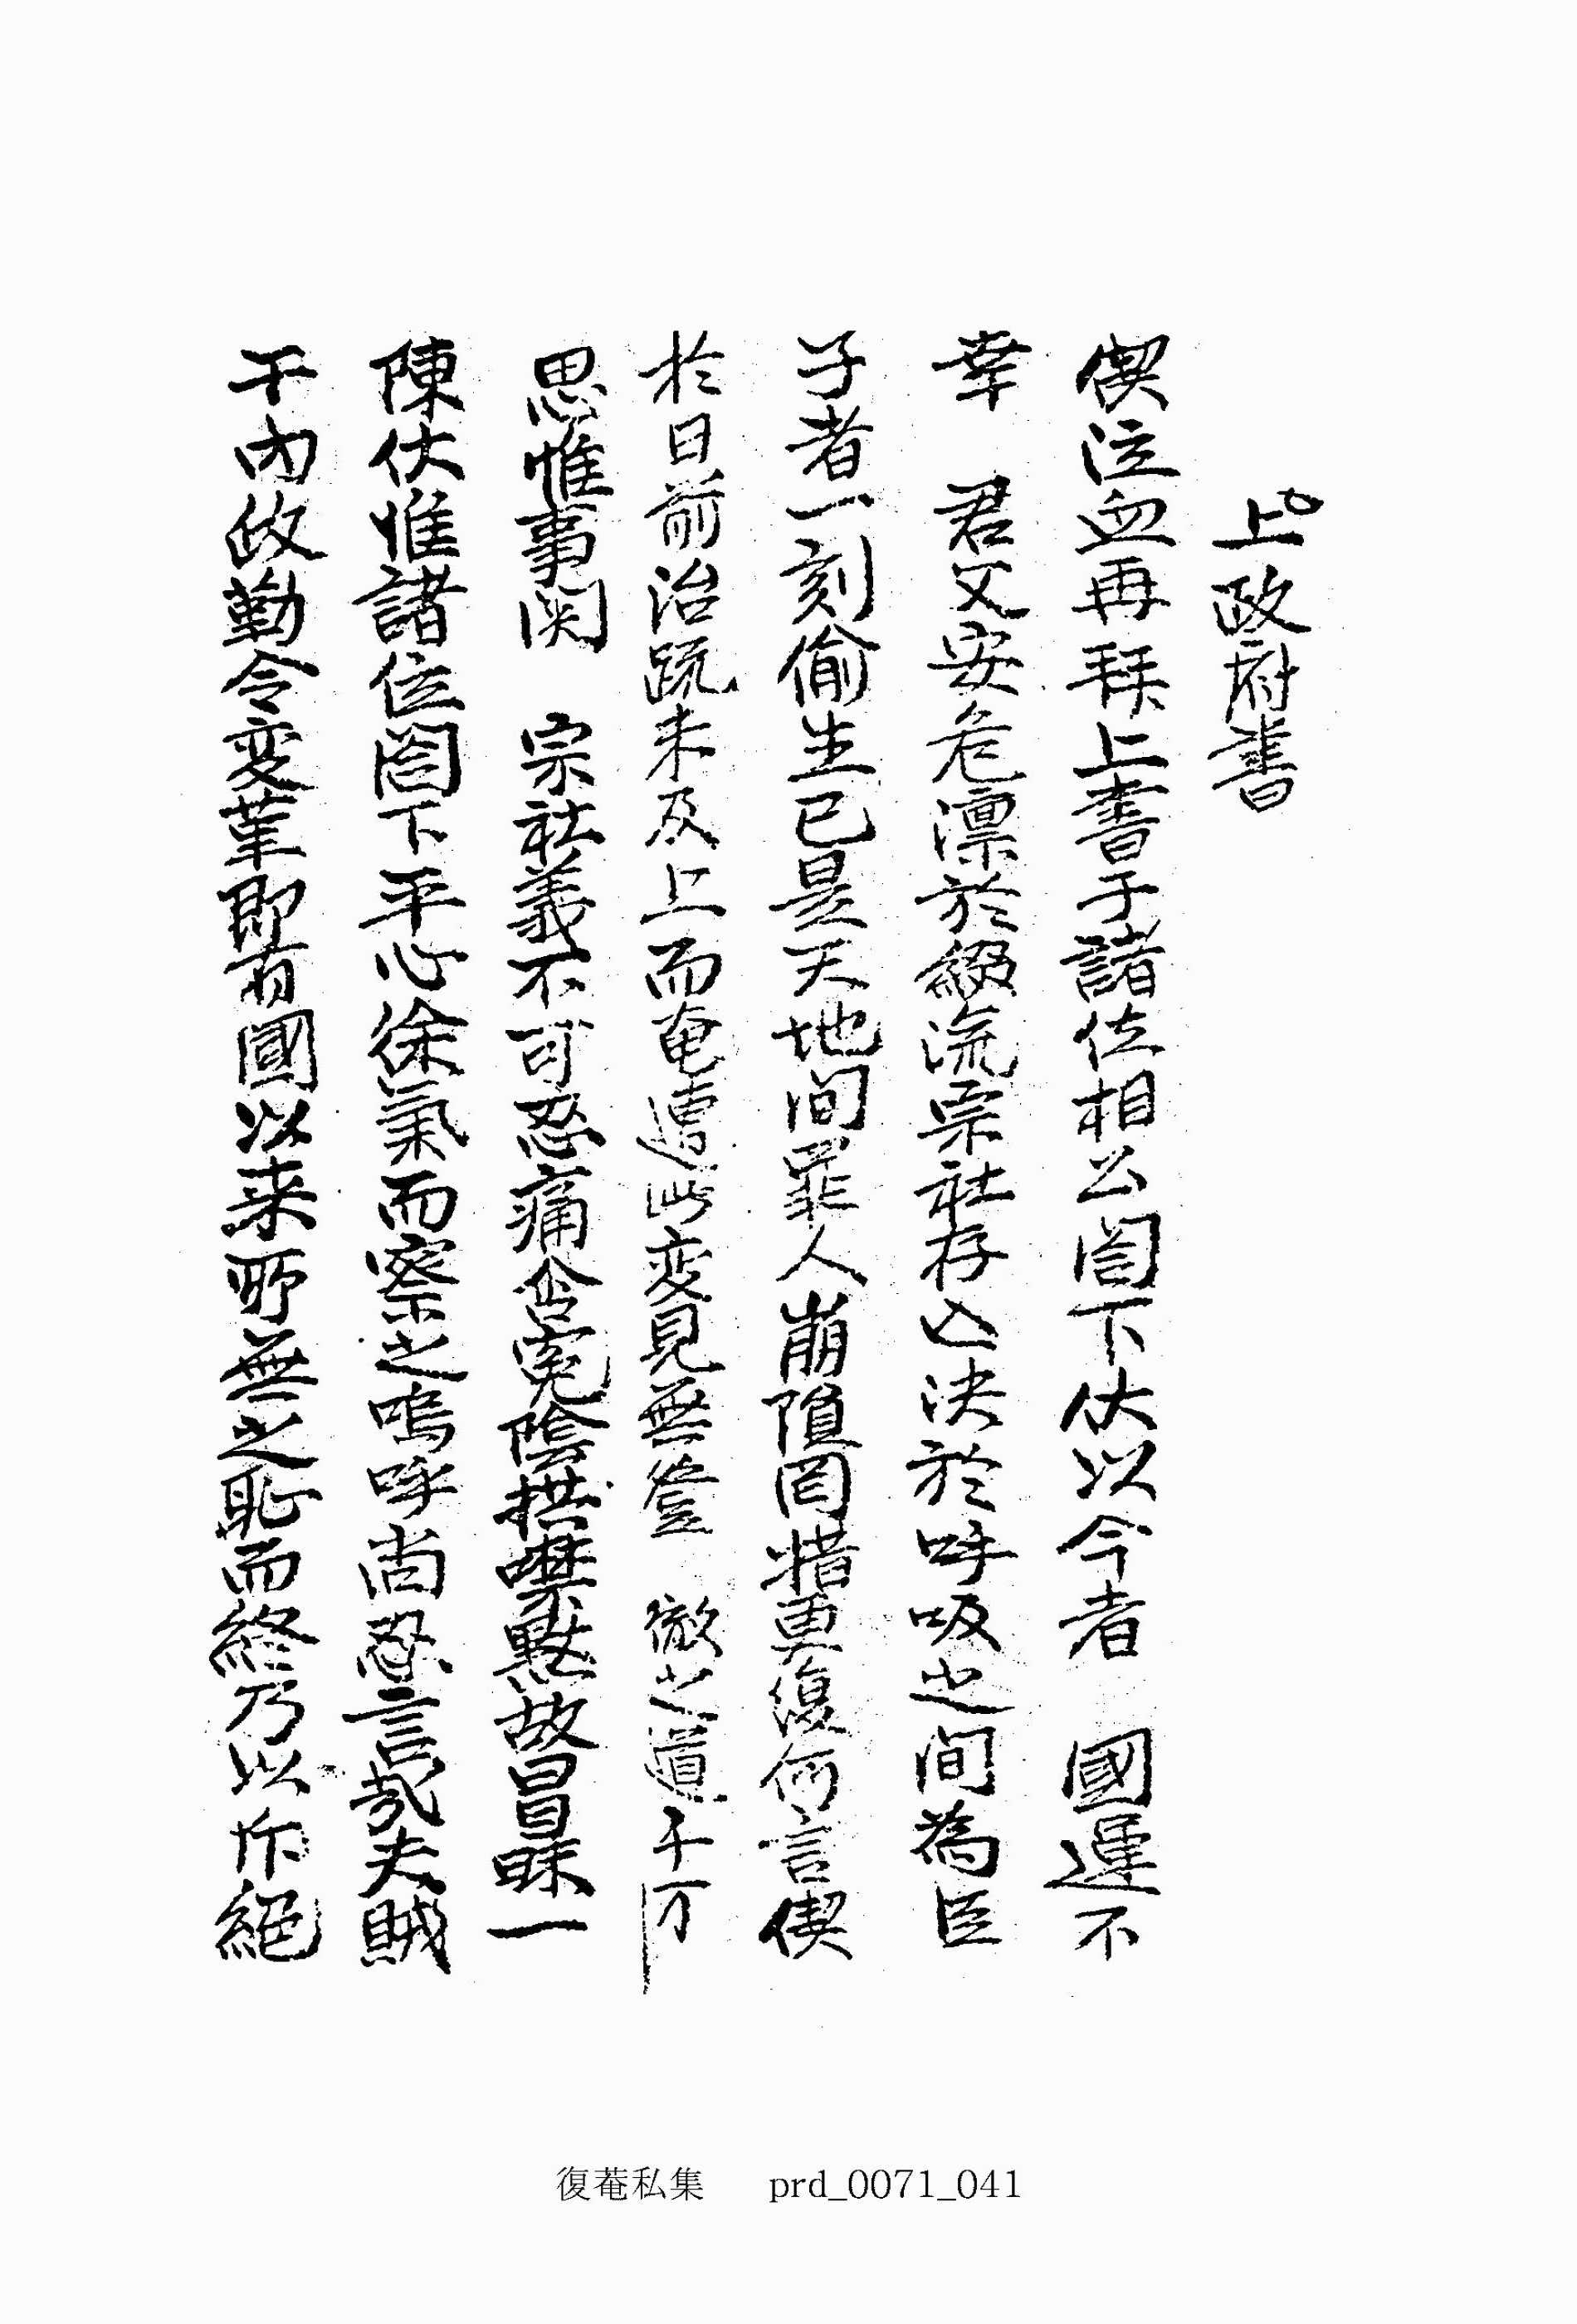 上政府書
偰泣血再拜上書于諸位相公閤下伏以今者 國運不
幸 君父安危凛於綴流宗社存亡決於呼吸之間為臣
子者一刻偷生已是天地間罪人崩隕罔措更復何言偰
於日前治疏未及上而奄遭此変見無登 徹之道千万
思惟事関 宗社義不可忍痛含寃陰拱噤默故冒昧一
陳伏惟諸位閤下平心徐氣而察之嗚呼尚忍言哉夫賊
干內政勤令変革即有國以来所無之恥而終乃以斥絕
復菴私集 prd_0071_041